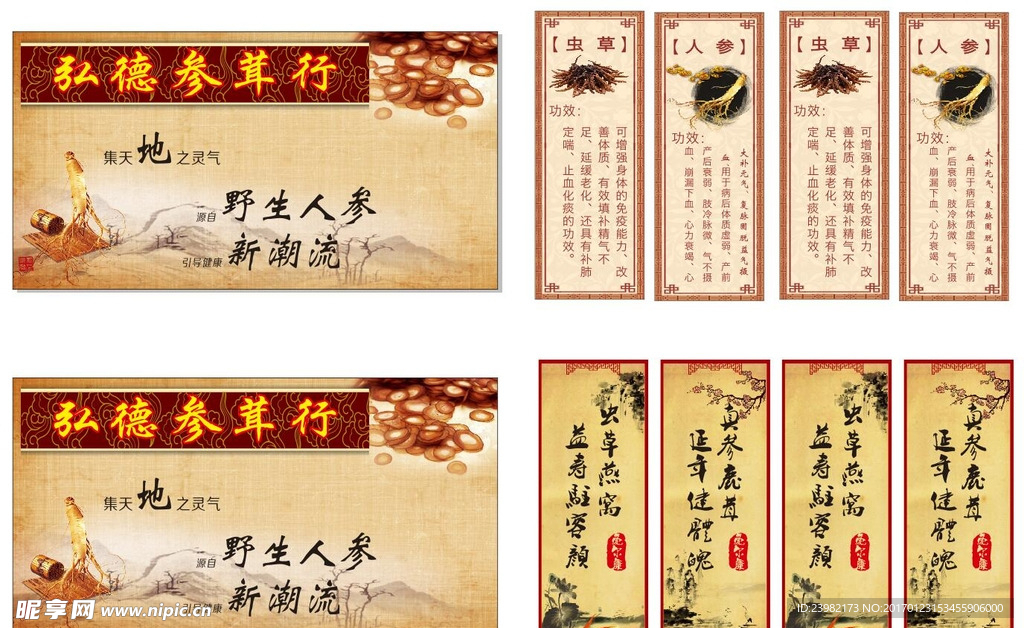 弘德参茸行
集天地之灵气
源自野生人参
引导健康新潮流
【虫草】
功效:
可增强身体的免疫能力、改
善体质、有效填补精气不
足、延缓老化、还具有补肺
定喘、止血化痰的功效。
【人参】
功效:
大补元气、复脉固脱益气摄
血.用于病后体质虚弱、产前
产后衰弱、肢冷脉微、气不摄
血、崩漏下血、心力衰竭、心
【虫草】
功效:
可增强身体的免疫能力、改
善体质、有效填补精气不
足、延缓老化、还具有补肺
定喘、止血化痰的功效。
【人参】
功效:
大补元气、复脉固脱益气摄
血.用于病后体质虚弱、产前
产后衰弱、肢冷脉微、气不摄
血、崩漏下血、心力衰竭、心
弘德参茸行
集天地之灵气
源自野生人参
引导健康新潮流
虫草燕窝
益寿駐容顔
真参鹿茸
延年健體魄
虫草燕窝
益寿駐容顔
真参鹿茸
延年健體魄
昵享网 www.nipic.cn
ID:23982173 NO:20170123153455906000